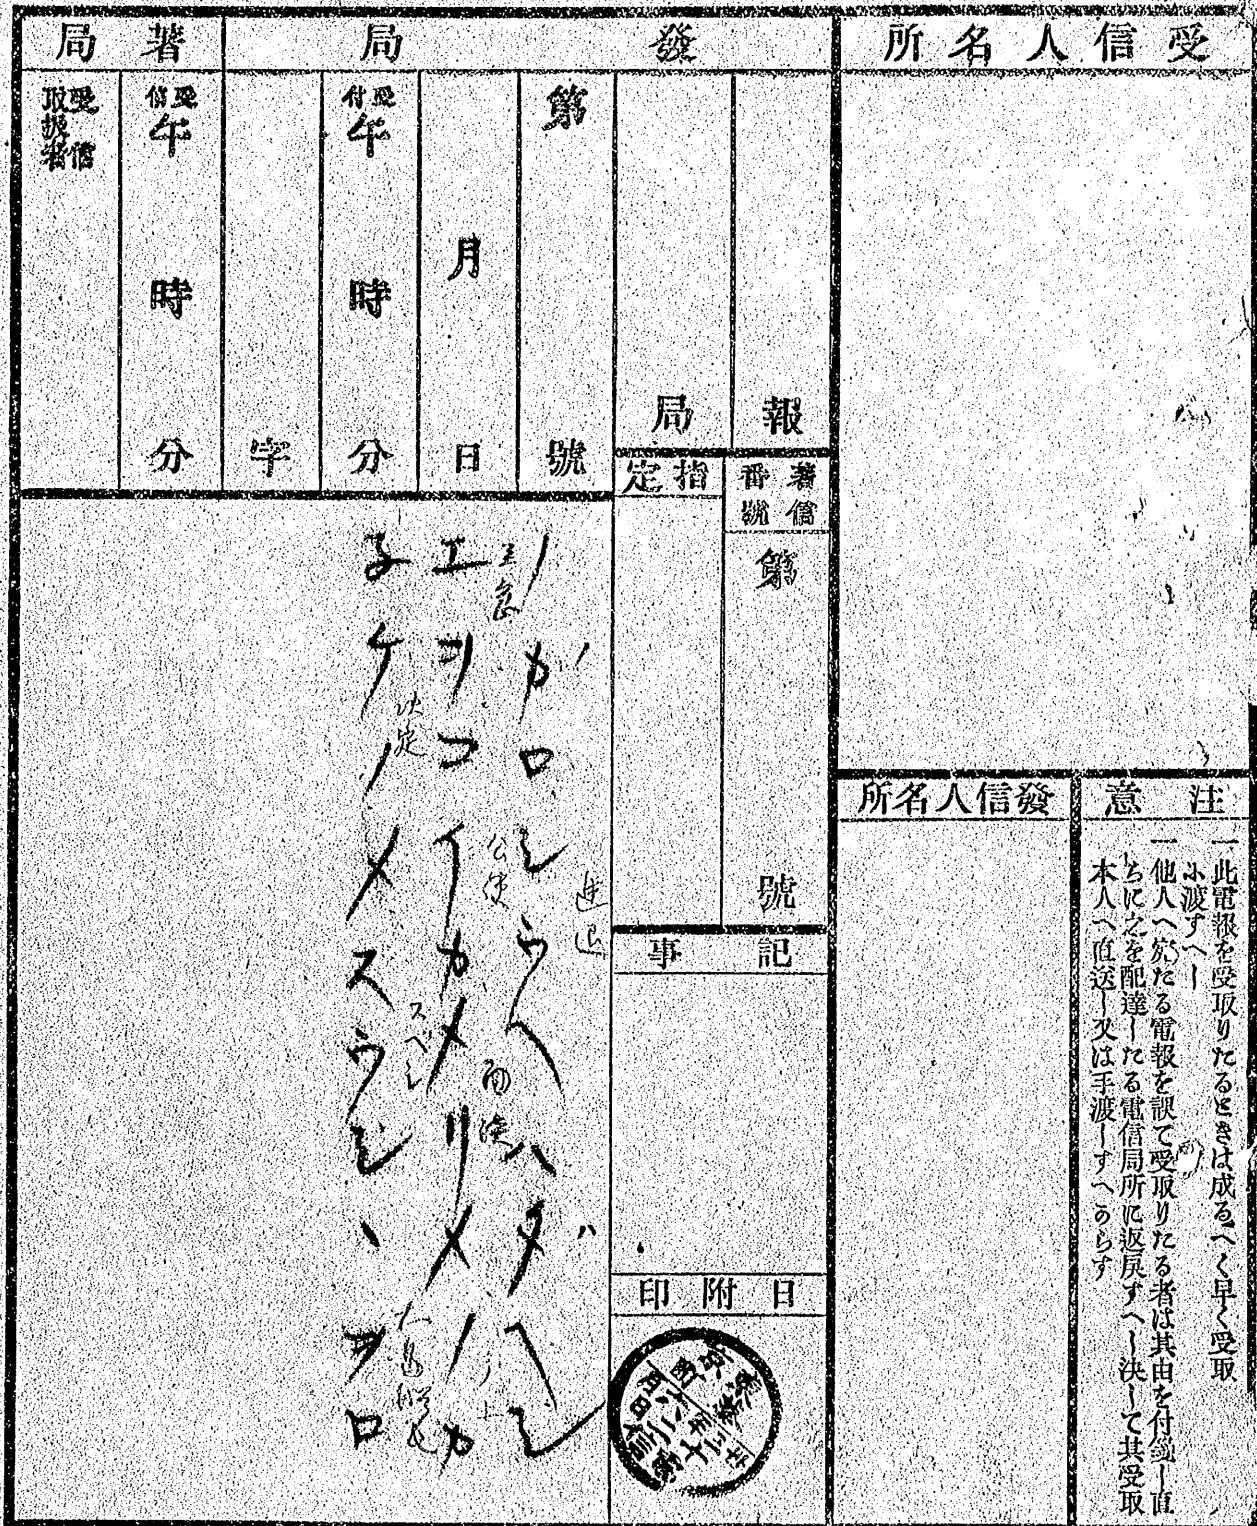 受信人名所
發局
著局
報
局
第號
月日
受付午時分
字
受信午時分
受信取扱者
著信番號
第號
指定
記事
日附印
注意
一此電報を受取りたるときは成るへく早く受取
小渡すへー
一他人へ宛たる電報を誤て受取りたる者は其由を付箋ー直
ちに之を配達ーたる電信局所に返戻すへー決ーて其受取
本人へ直送ー又は手渡ーすへあらす
發信人名所
進退
ノガロシウヘハダヘシ
至急
公使
面湊
エヲコイカメリメノカ
決定
スベシ
ケノメスウシハヲロ